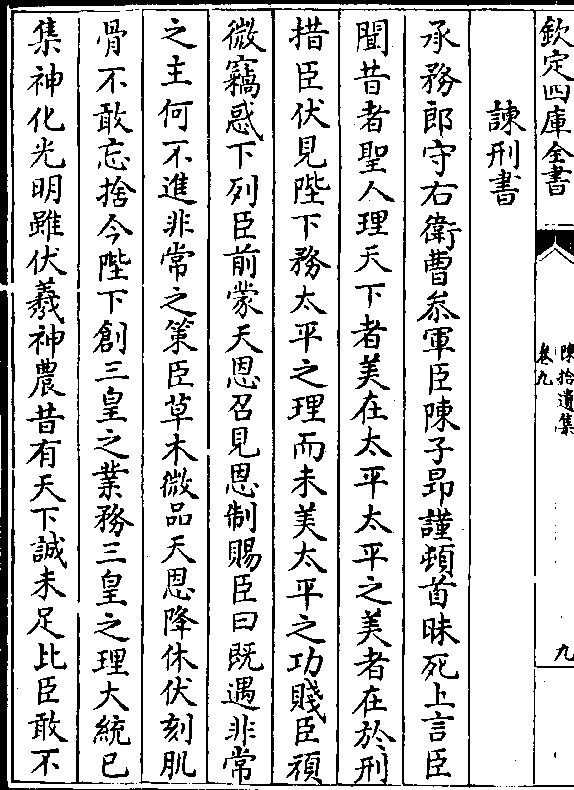 欽定四庫全書
陳拾遺集
卷九
九
諫刑書
承務郎守右衛曹叅軍臣陳子昻謹頓首昧死上言臣
聞昔者聖人理天下者美在太平太平之美者在於刑
措臣伏見陛下務太平之理而未美太平之功賤臣頑
微竊惑下列臣前蒙天恩召見恩制賜臣曰既遇非常
之主何不進非常之策臣草木微品天恩降休伏刻肌
骨不敢忘捨今陛下創三皇之業務三皇之理大統已
集神化光明雖伏羲神農昔有天下誠未足比臣敢不